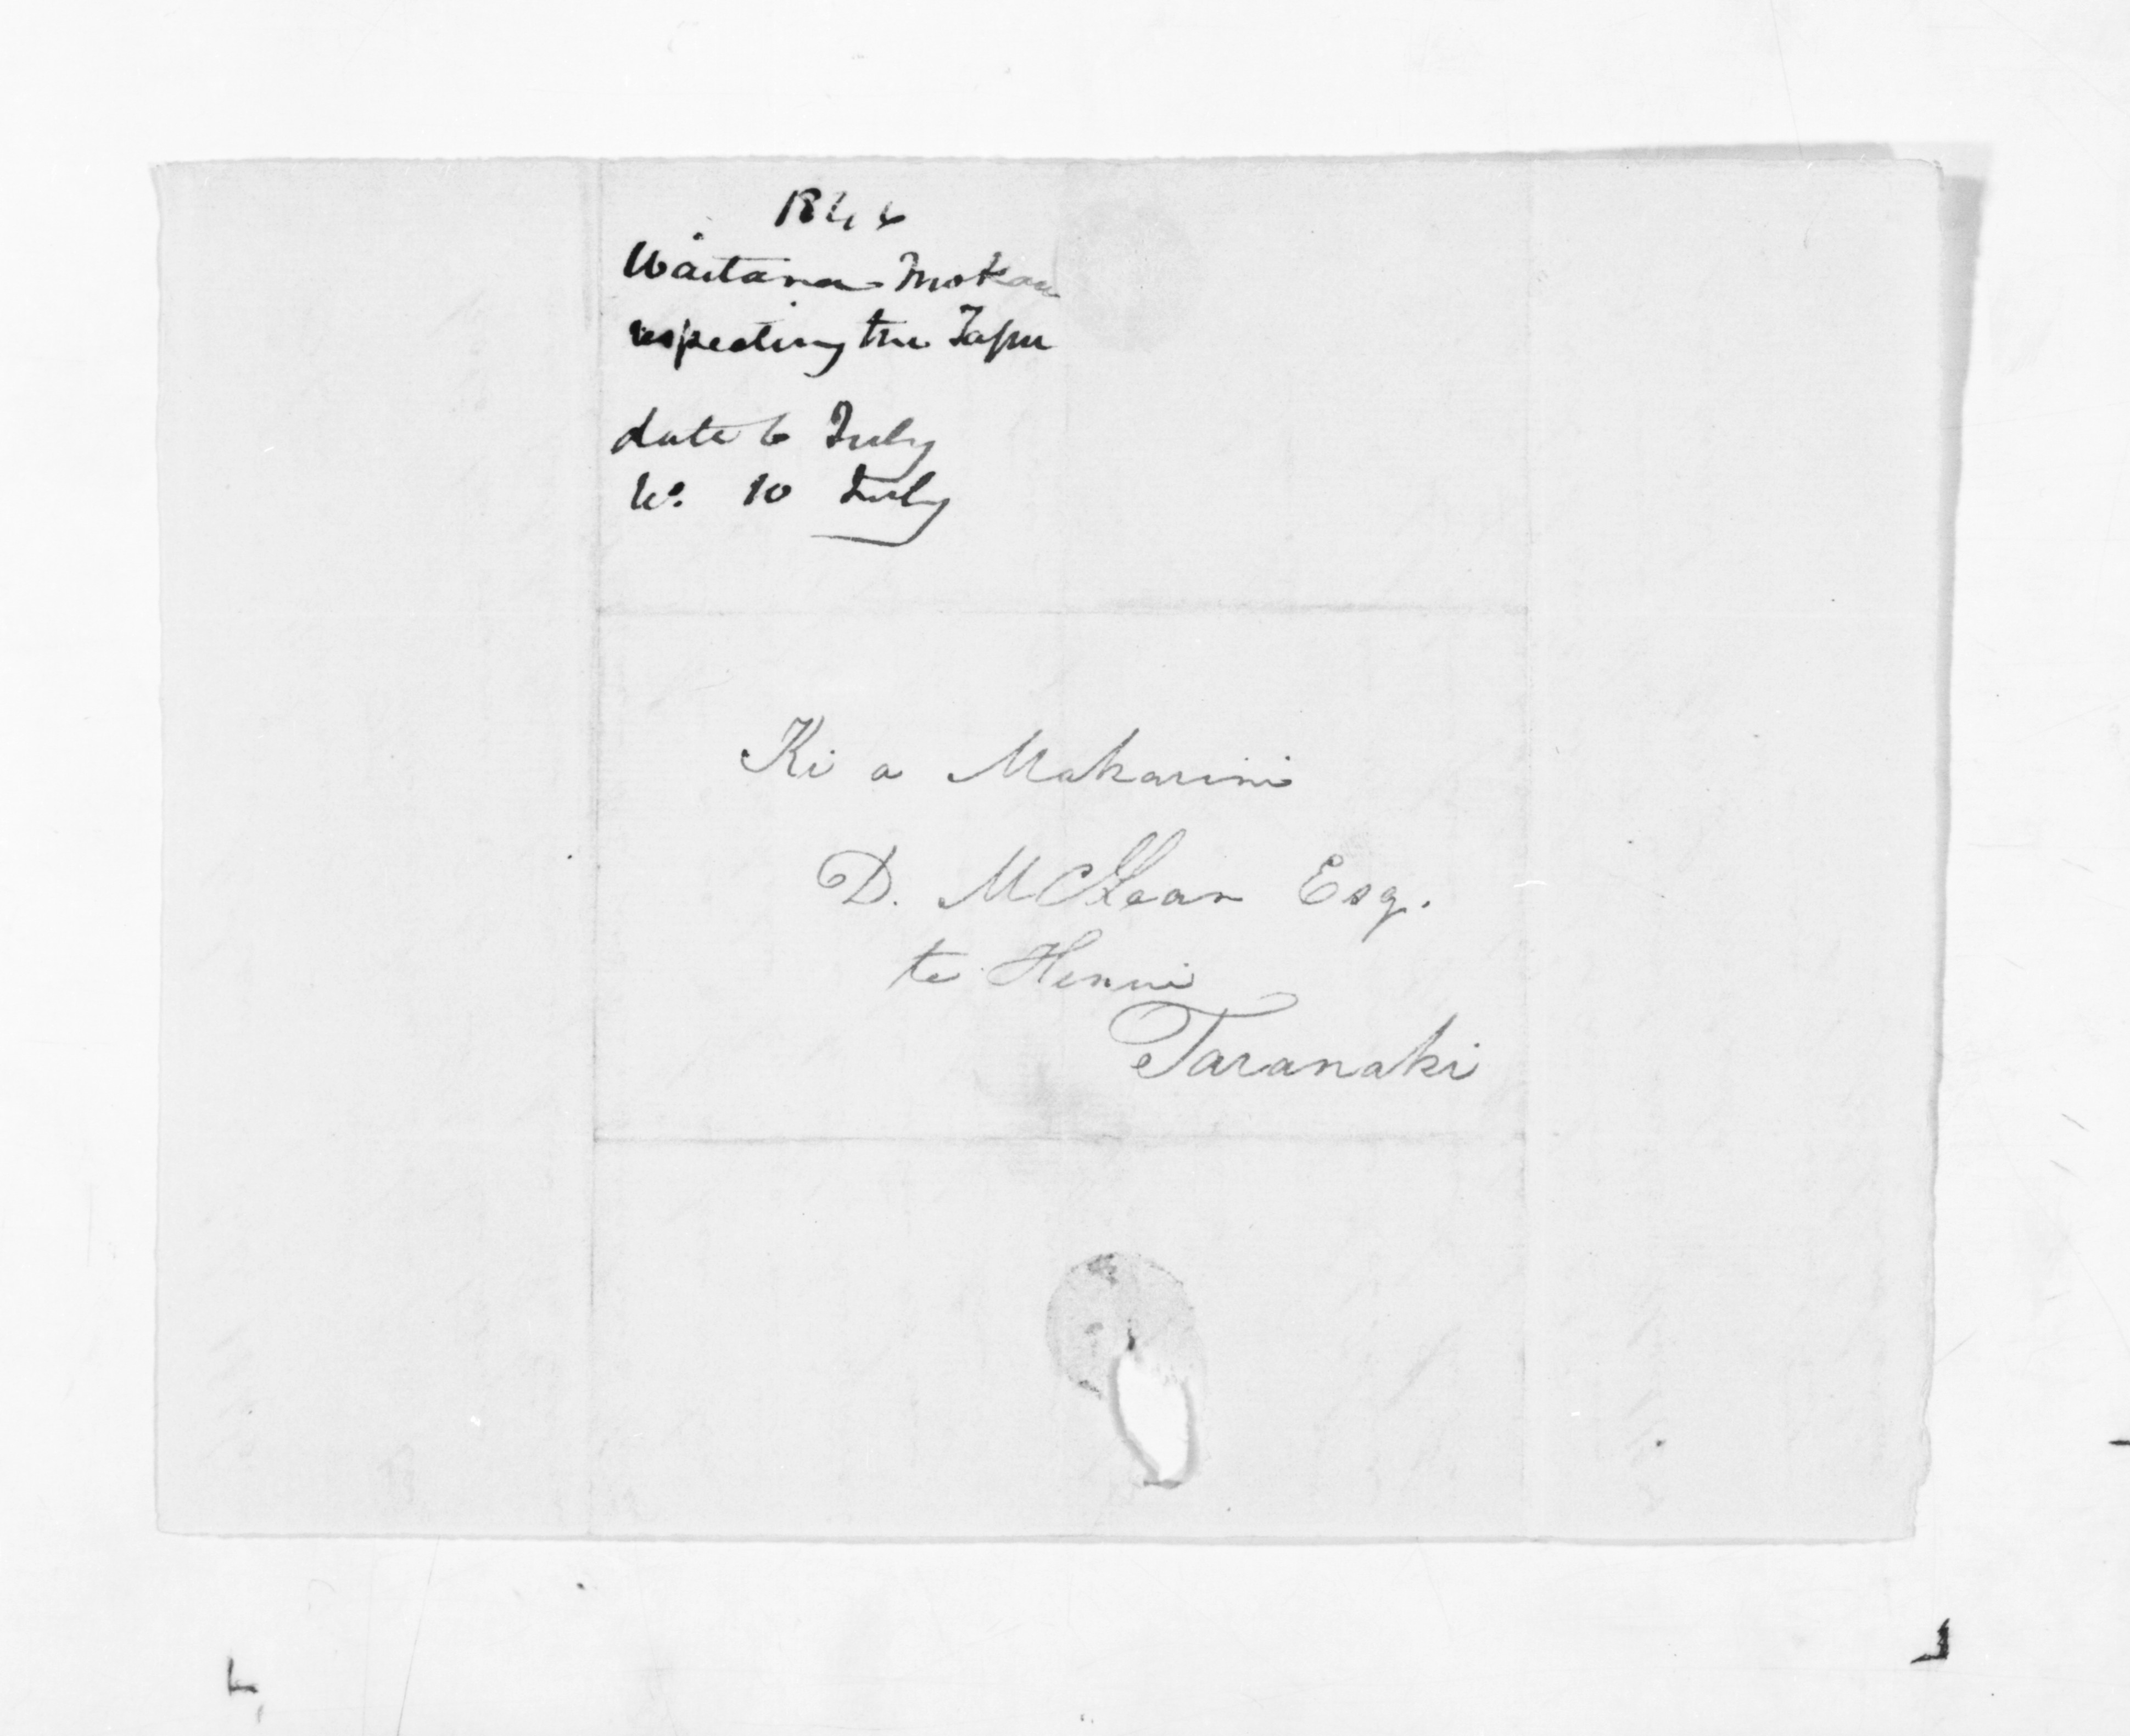 184
Waitana Mokau
respecting the Tapu
date 6 July
10 July
Ki a Makarini
D. McLean Esq.
te Henui
Taranaki